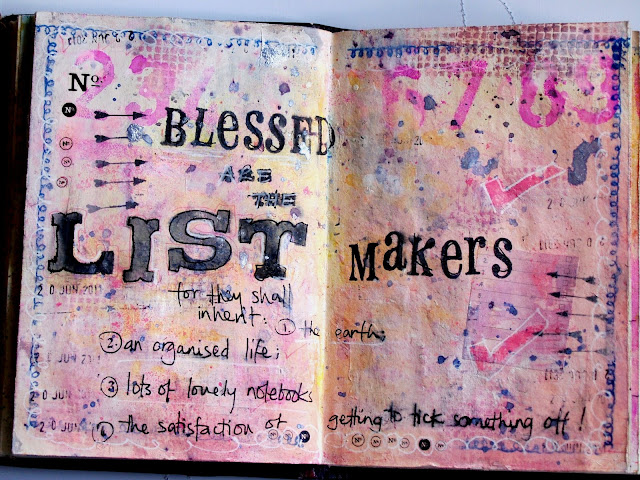 Nº
234
6789
BLESSED
ARE
THE
LIST MAKERS
20 JUN 2011
for they shall
inherit: ① the earth;
② an organised life;
③ lots of lovely notebooks
④ the satisfaction of getting to tick something off!